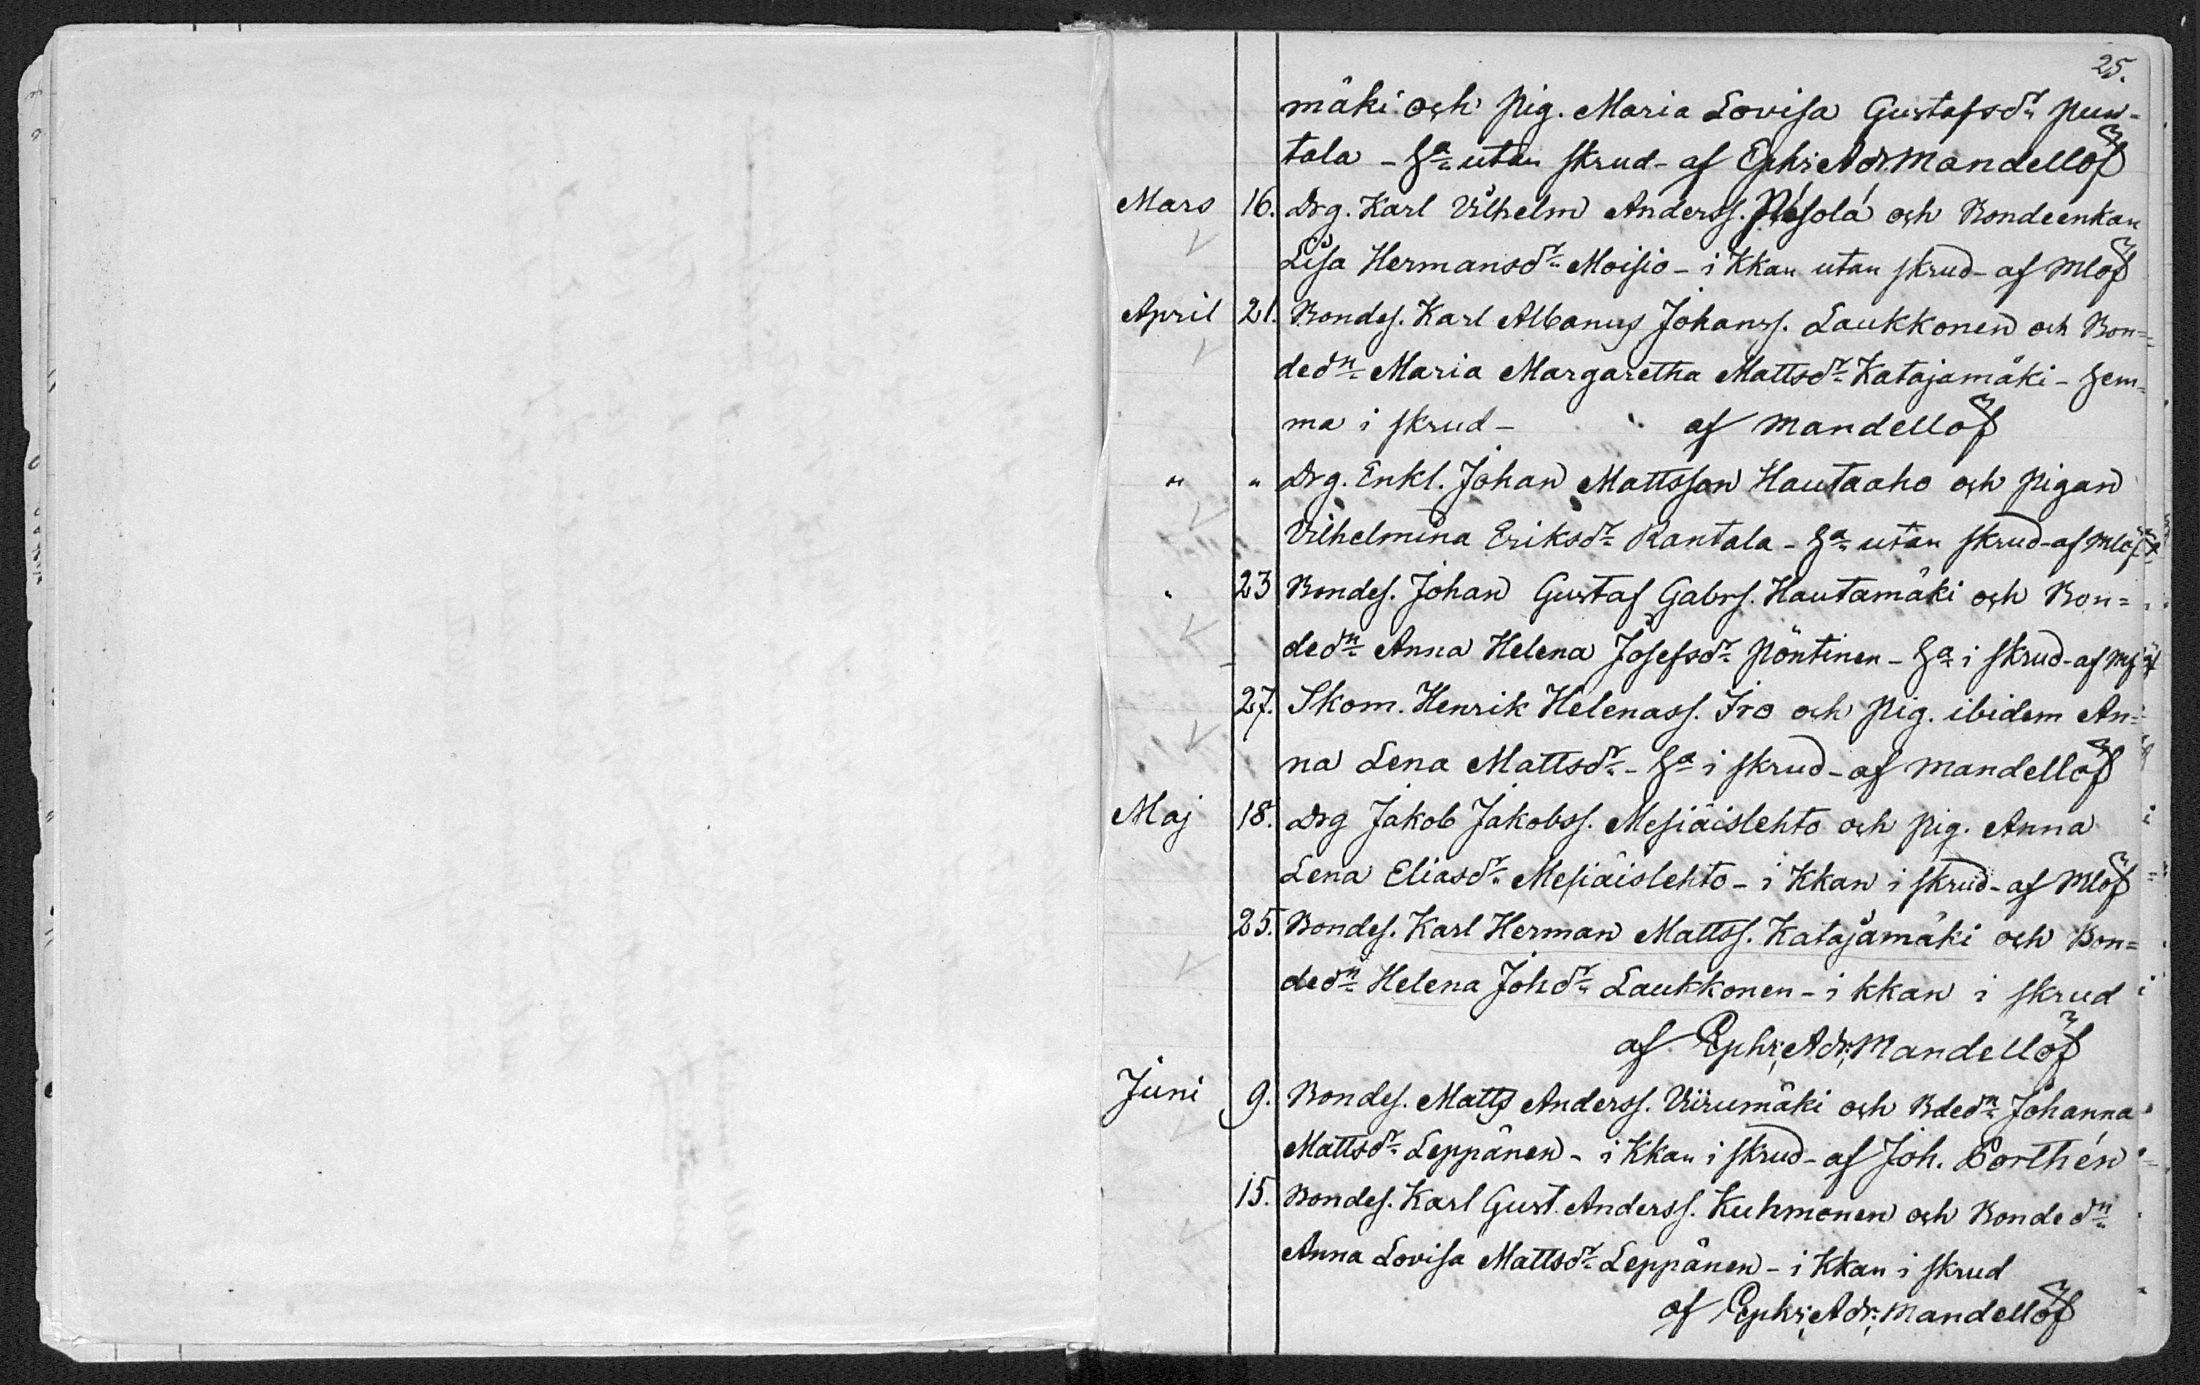 25.
mäki och Pig. Maria Lovisa Gustafsdr Pun-
tala - Ha utan skrud - af Ephr. Adr. Mandellöf
Mars 16. Drg. Karl Vilhelm Anderss. Pesola och Bondeenkan
Lisa Hermansdr Moisio - i Kkan utan skrud - af Mlöf
April 21. Bondes. Karl Albanus Johanss. Laukkonen och Bon=
dedn Maria Margaretha Mattsdr Katajamäki - hem=
ma i skrud - af Mandellöf
" " Drg. Enkl. Johan Mattsson Hautaaho och Pigan
Vilhelmina Eriksdr Rantala - Ha utan skrud - af Mlöf
" 23 Bondes. Johan Gustaf Gabrs. Hautamäki och Bon=
dedn Anna Helena Josefsdr Pöntinen - Ha i skrud - af
27. Skom. Henrik Helenass. Iro och Pig. ibidem An=
na Lena Mattsdr - Ha i skrud - af Mandellöf
Maj 18. Drg Jakob Jakobss. Mesiäislehto och Pig. Anna
Lena Eliasdr Mesiäislehto - i Kkan i skrud - af Mlöf
25. Bondes. Karl Herman Mattss. Katajamäki och Bon=
dedn Helena Johdr Laukkonen - i kkan i skrud
af Ephr. Adr. Mandellöf
Juni 9. Bondes. Matts Anderss. Viirumäki och Bdedn Johanna
Mattsdr Leppänen - i Kkan i skrud - af Joh. Porthén
15. Bondes. Karl Gust. Anderss. Kuhmonen och Bondedn
Anna Lovisa Mattsdr Leppänen - i Kkan i skrud
af Ephr. Adr. Mandellöf